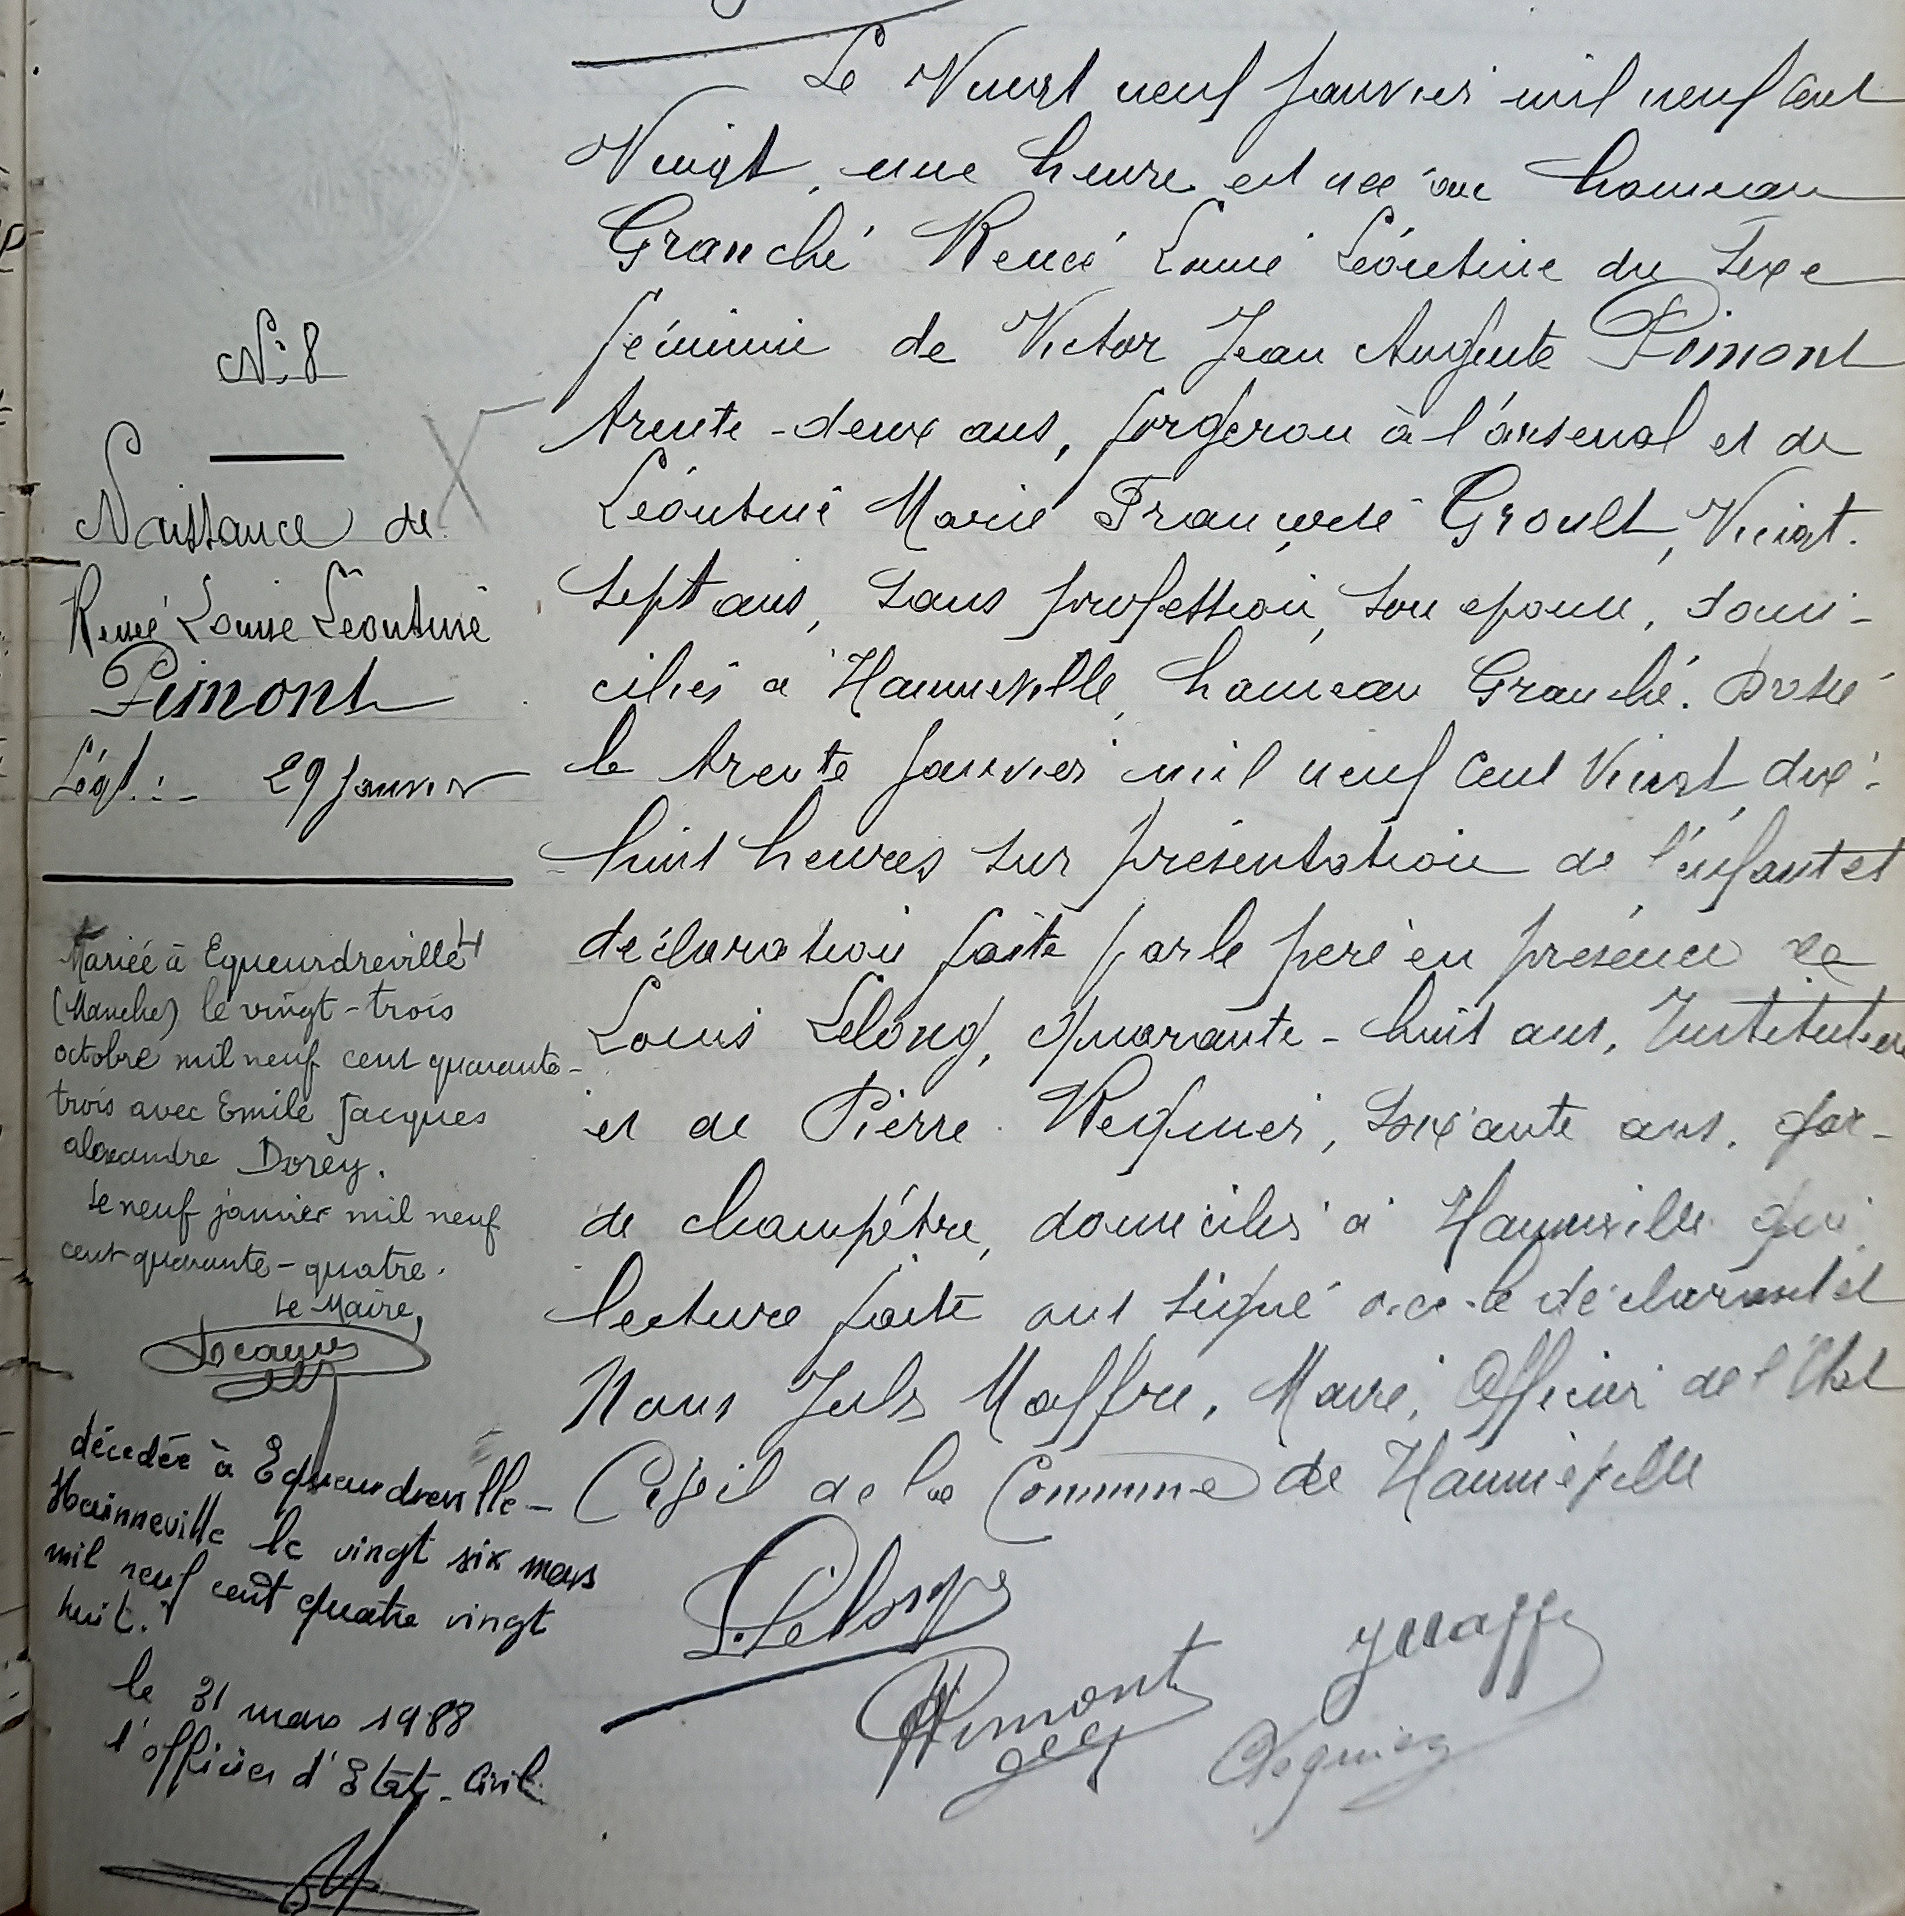 N° 8
Naissance de
Renée Louise Léontine
Pimont
Légt. :- 29 Janvier
Mariée à Equeurdreville
(Manche) le vingt-trois
octobre mil neuf cent quarante-
trois avec Emile Jacques
alexandre Dorey.
Le neuf janvier mil neuf
cent quarante-quatre.
Le Maire,
décédée à Equeurdreville-
Hainneville le vingt six mars
mil neuf cent quatre vingt
huit.
le 31 mars 1988
l'officier d'Etat-Civil
Le Vingt neuf Janvier mil neuf Cent
Vingt, une heure est née au hameau
Granché Renée Louise Léontine du Sexe
féminin de Victor Jean Auguste Pimont
trente-deux ans, forgeron à l'arsenal et de
Léontine Marie Françoise Groult, Vingt-
Sept ans, Sans profession, Son epouse, domi-
ciliés à Hainneville, hameau Granché. Dressé
le trente Janvier mil neuf Cent Vingt dix-
huit heures sur présentation de l'enfant et
déclaration faite par le père en présence de
Louis Lelong, quarante-huit ans, Instituteur
et de Pierre Regnier, Soixante ans, gar-
de champêtre, domiciliés à Hainneville qui
lecture faite ont Signé avec le déclarant et
Nous Jules Maffre, Maire, Officier de l'Etat
Civil de la Commune de Hainneville
L. Lelong
JMaffre
Pimont
Regnier